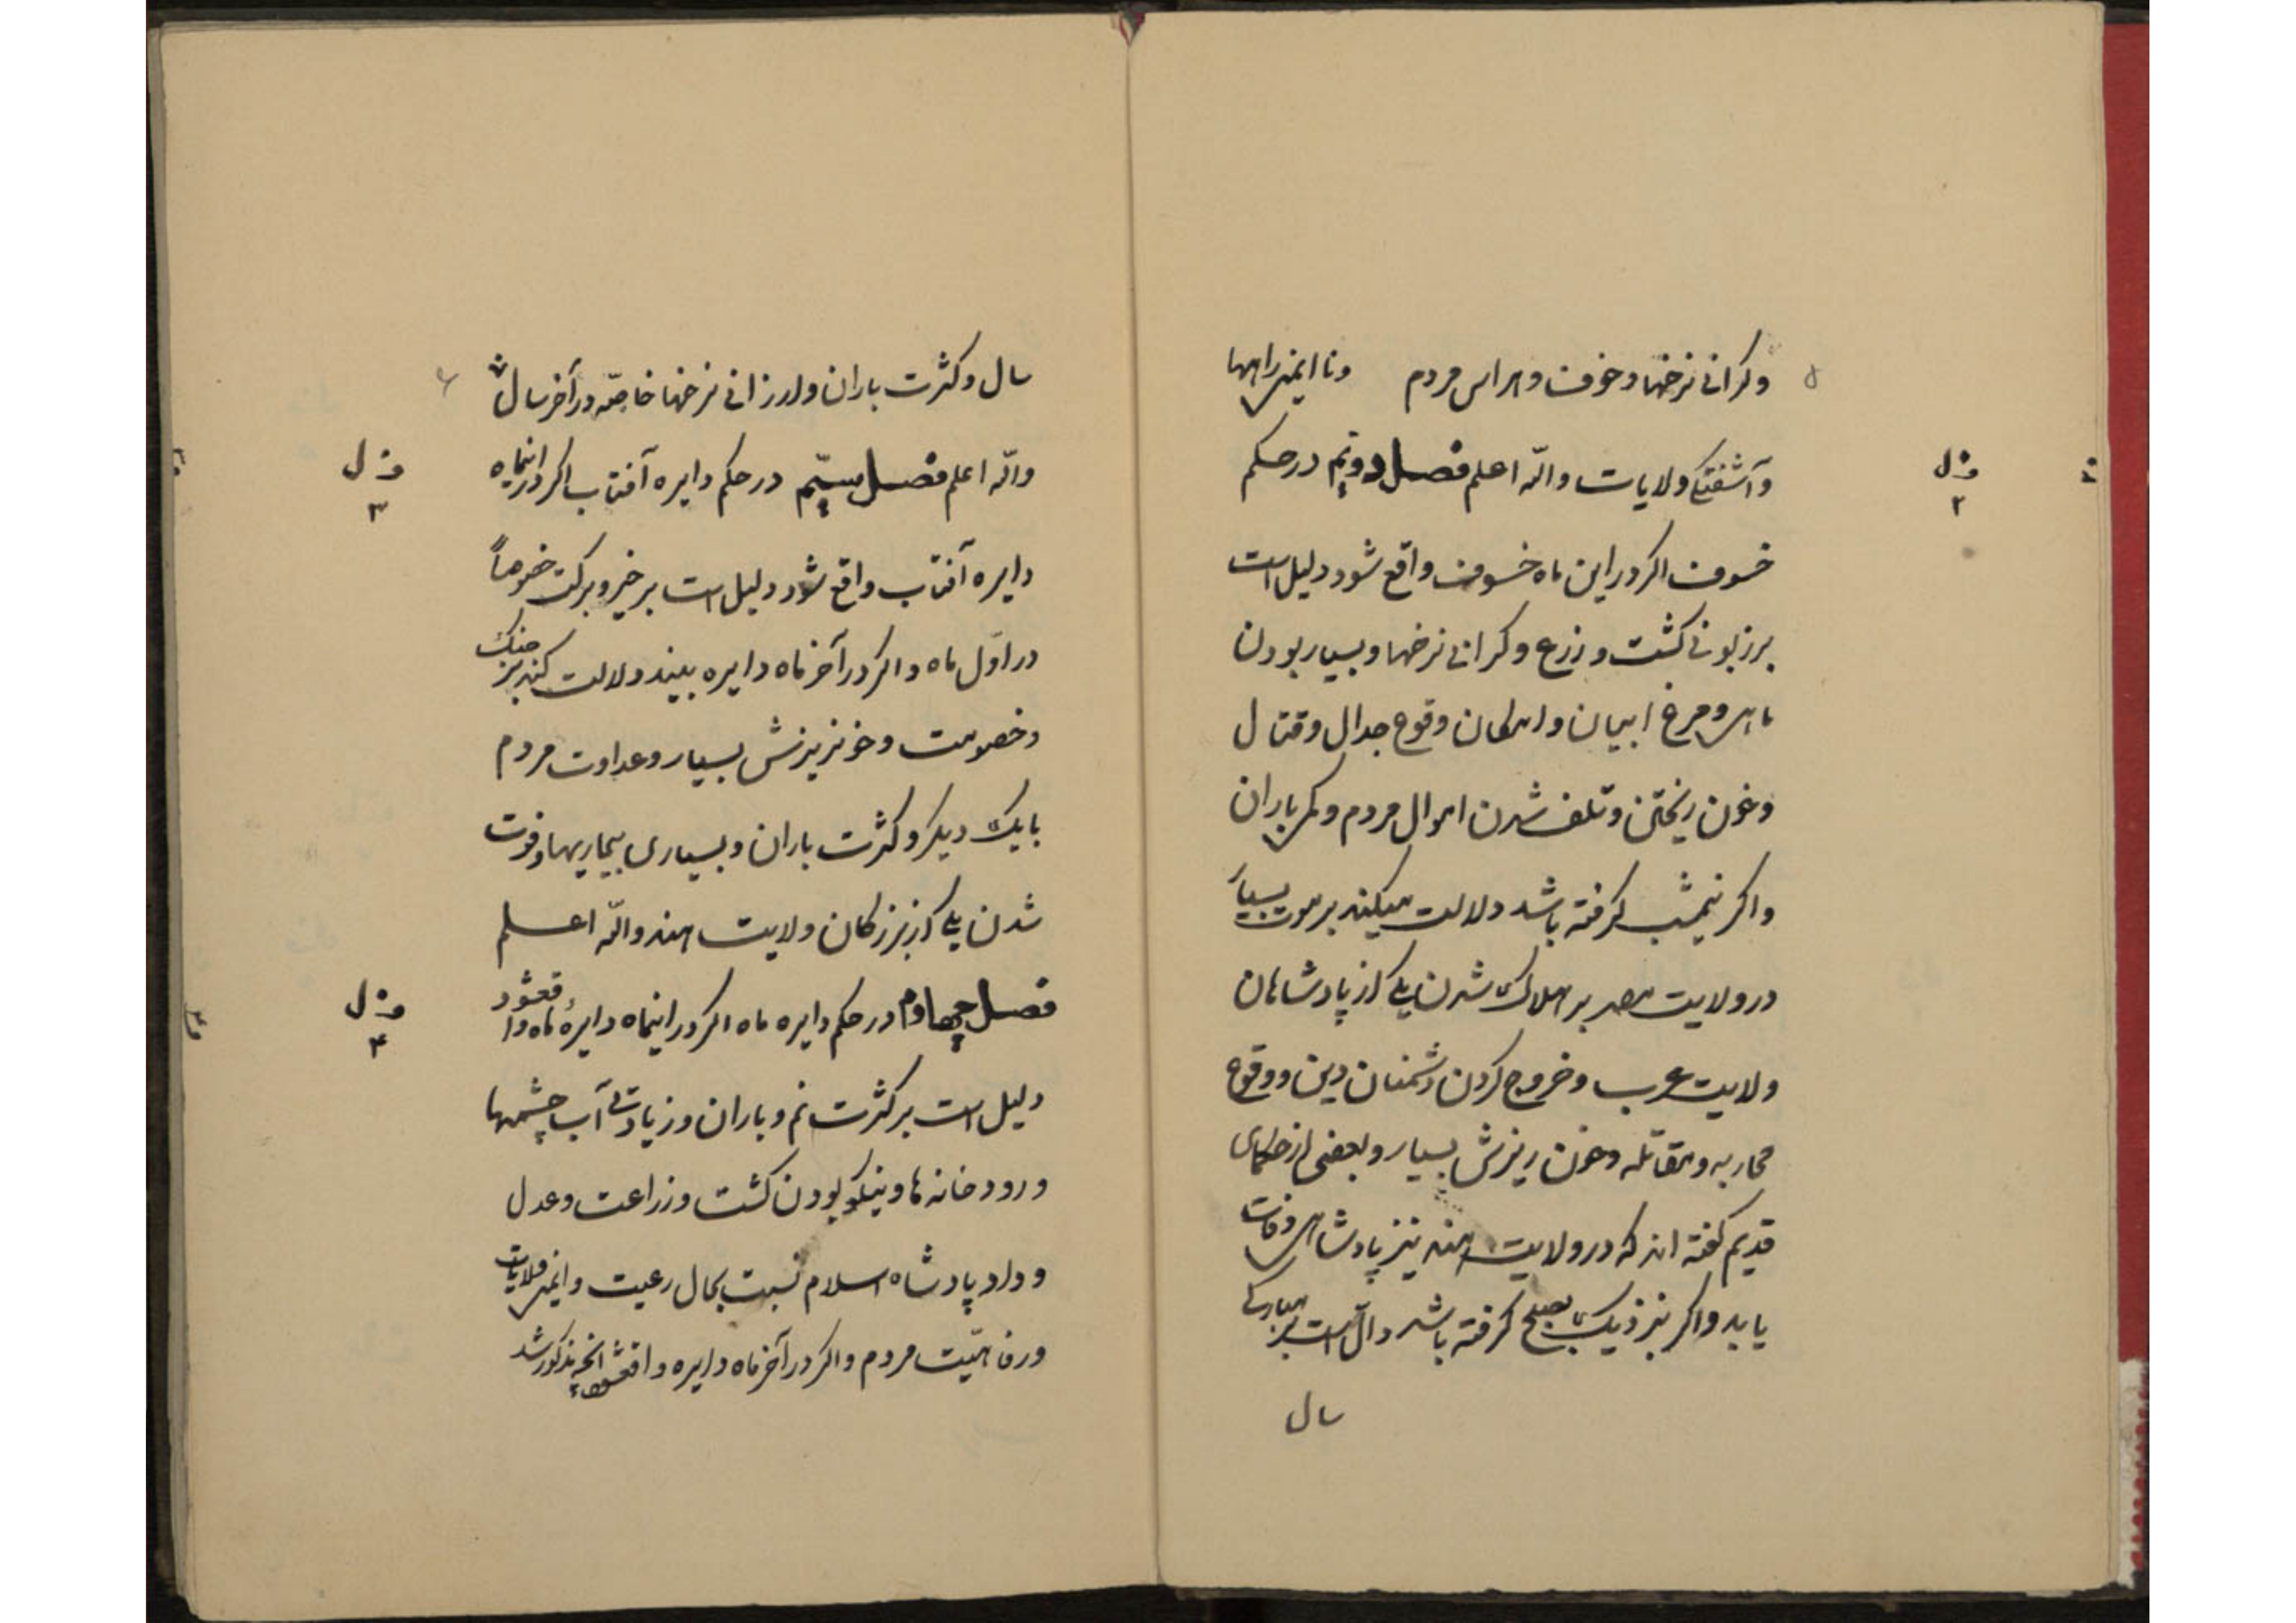 ۵
وکرانی نرخها و خوف و هراس مردم و نا ایمنی راهها
و آشفتگی ولایات واللّه اعلم فصل دویّم در حکم
ف ل
۲
خسوف اکر در این ماه خسوف واقع شود دلیل است
بر زبونی کشت و زرع و کرانی نرخها و بسیار بودن
ماهی و مرغ ابیان و امکان وقوع جدال و قتال
و خون ریختن و تلف شدن اموال مردم و کمی باران
و اکر نیمشب کرفته باشد دلالت میکند بر موت بسیار
در ولایت مصر بر هلاک شدن یکی از پادشاهان
ولایت عرب و خروج کردن دشمنان دین و وقوع
محاربه و مقاتله و خون ریزش بسیار و بعضی از حکمای
قدیم کفته اند که در ولایت هند نیز پادشاهی وفات
یابد و اکر بنزدیک بصبح کرفته باشد دالّ است بر مبارکی
سال
۶
سال و کثرت باران و ارزانی نرخها خاصّه در آخر سال
واللّه اعلم فصل سیّم در حکم دایره آفتاب اکر در اینماه
ف ل
۳
دایره آفتاب واقع شود دلیل است بر خیر و برکت خصوصاً
در اوّل ماه و اکر در آخر ماه دایره بیند دلالت کند بر جنک
و خصومت و خونریزش بسیار و عداوت مردم
با یک دیکر و کثرت باران و بسیاری بیماریها و فوت
شدن یکی از بزرکان ولایت هند واللّه اعلم
فصل چهارم در حکم دایره ماه اکر در اینماه دایرۀ ماه واقعشود
ف ل
۴
دلیل است بر کثرت نم و باران و زیادتی آب چشمها
و رودخانه ها و نیکو بودن کشت و زراعت و عدل
و داد پادشاه اسلام نسبت بحال رعیت و ایمنی ولایات
و رفاهیّت مردم و اکر در آخر ماه دایره واقعشود انچه مذکور شد